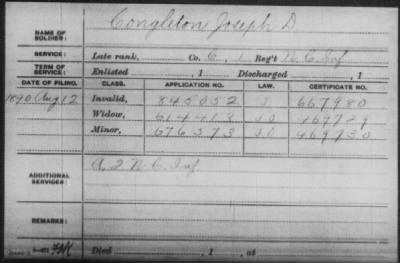 NAME OF SOLDIER: Congleton, Joseph D.
SERVICE: Late rank, Co. C, 1 Reg't N.C. Inf
TERM OF SERVICE: Enlisted , 1 Discharged , 1
DATE OF FILING. CLASS. APPLICATION NO. LAW. CERTIFICATE NO.
1890 Aug 12 Invalid, 845052 667980
Widow, 614418 469729
Minor, 676573 469730
ADDITIONAL SERVICES: A. 2 N.C. Inf.
REMARKS:
Died , 1 , at